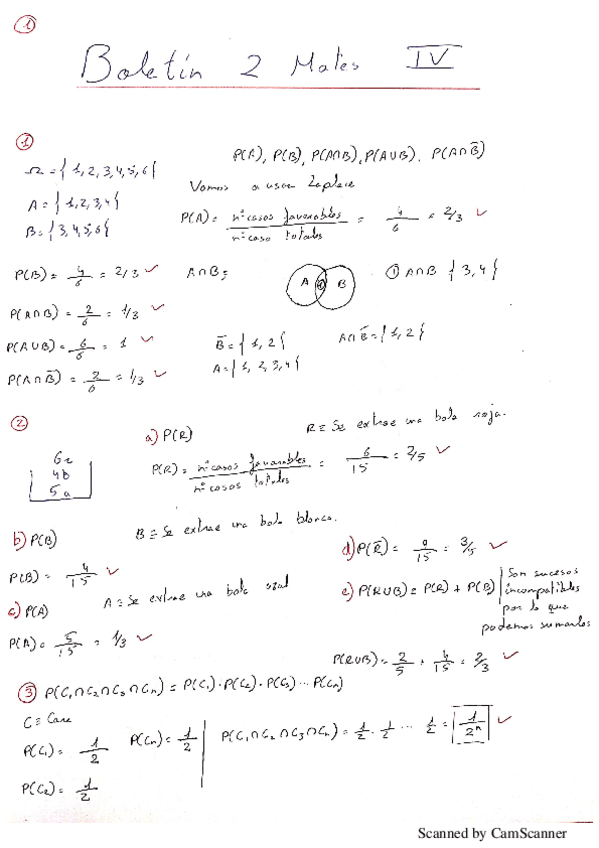 ①
Boletín 2 Mates IV
①
Ω = { 1, 2, 3, 4, 5, 6 {
P(A), P(B), P(A∩B), P(A∪B). P(A∩B̄)
Vamos a usar Laplace
A = { 1, 2, 3, 4 {
B = { 3, 4, 5, 6 {
P(A) = nº casos favorables / nº caso totales = 4/6 = 2/3 ✓
P(B) = 4/6 = 2/3 ✓
A∩B =
A ① B
① A∩B { 3, 4 {
P(A∩B) = 2/6 = 1/3 ✓
P(A∪B) = 6/6 = 1 ✓
B̄ = { 1, 2 {
A∩B̄ = { 1, 2 {
P(A∩B̄) = 2/6 = 1/3 ✓
A = { 1, 2, 3, 4 {
②
a) P(R)
R ≡ Se extrae una bola roja.
6r
4b
5a
P(R) = nº casos favorables / nº casos totales = 6/15 = 2/5 ✓
b) P(B)
B ≡ Se extrae una bola blanca.
P(B) = 4/15 ✓
c) P(A)
A ≡ Se extrae una bola azul
P(A) = 5/15 = 1/3 ✓
d) P(R̄) = 9/15 = 3/5 ✓
e) P(R∪B) = P(R) + P(B)
Son sucesos
incompatibles
por lo que
podemos sumarlos
P(R∪B) = 2/5 + 4/15 = 2/3 ✓
③ P(C₁∩C₂∩C₃∩Cn) = P(C₁)·P(C₂)·P(C₃)···P(Cn)
C ≡ Cara
P(C₁) = 1/2
P(Cn) = 1/2
P(C₁∩C₂∩C₃∩Cn) = 1/2 · 1/2 ··· 1/2 = 1/2ⁿ ✓
P(C₂) = 1/2
Scanned by CamScanner